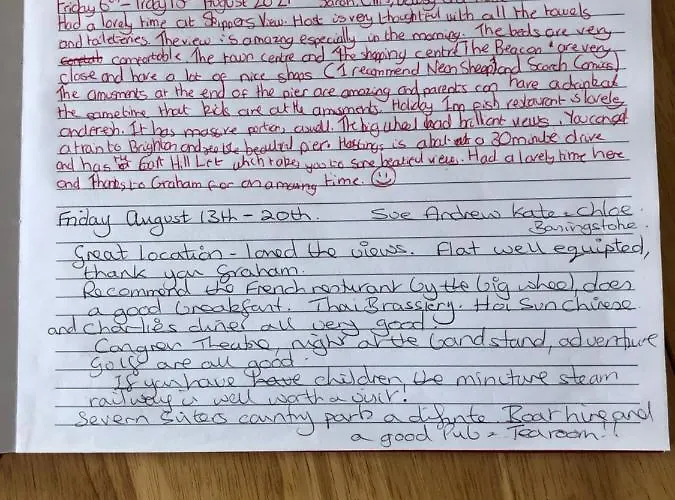 Friday 6th - Friday 13th August 2021 Sarah,
Had a lovely time at Skippers View. Host is very thoughtful with all the towels
and toiletries. The view is amazing especially in the morning. The beds are very
comfortable. The town centre and the shoping centre 'The Beacon' are very
close and have a lot of nice shops (I recommend Neon Sheep and Scotch Comics)
The amusments at the end of the pier are amazing and parents can have a drink at
the sametime that kids are at the amusments. Holiday Inn fish restaurant is lovely
and fresh. It has massive portion, as well. The big wheel had brilliant views. You can get
a train to Brighton and see the beautiful pier. Hastings is about a 30 minute drive
and has the East Hill Lift which takes you to some beautiful views. Had a lovely time here
and Thanks to Graham for an amazing time.
Friday August 13th - 20th. Sue Andrew Kate & Chloe.
Basingstoke.
Great location - loved the views. Flat well equipted,
thank you Graham.
Recommend the French resturant by the big wheel, does
a good breakfast. Thai Brassiery. Hoi Sun chinese
and Charlies diner all very good.
Congress Theatre, night at the bandstand, adventure
Golf are all good.
If you have have children the mincture steam
railway is well worth a visit!
Severn Sisters country park a difante Boat hire and
a good Pub & Tearoom!!